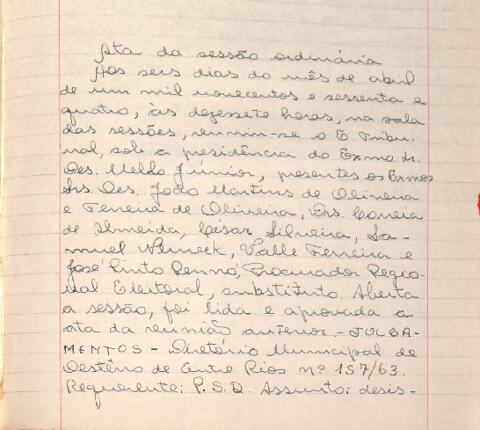 Ata da sessão ordinária
Aos seis dias do mês de abril
de um mil novecentos e sessenta e
quatro, às dezessete horas, na sala
das sessões, reuniu-se o E. Tribu-
nal, sob a presidência do Exmo. Sr.
Des. Mello Júnior, presentes os Exmos.
Srs. Des. João Martins de Oliveira
e Ferreira de Oliveira, Drs. Correia
de Almeida, César Silveira, Sa-
muel Werneck, Valle Ferreira e
José Pinto Rennó, Procurador Regio-
nal Eleitoral, substituto. Aberta
a sessão, foi lida e aprovada a
ata da reunião anterior. - JULGA-
MENTOS - Diretório Municipal de
Destêrro de Entre Rios nº 157/63.
Requerente: P.S.D. Assunto: desis-